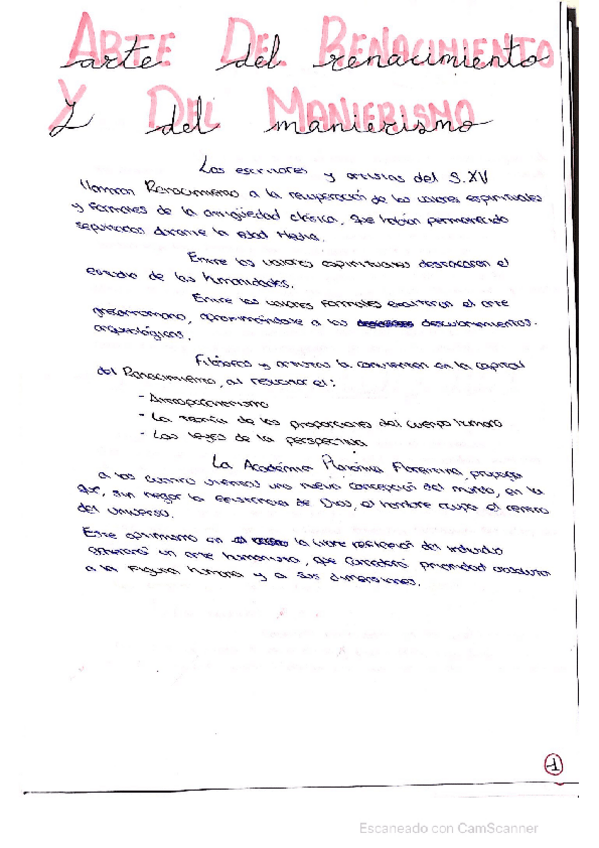 ARTE DEL RENACIMIENTO
arte del renacimiento
Y DEL MANIERISMO
y del manierismo
Los escritores y artistas del S.XV
llamaron Renacimiento a la recuperación de los valores espirituales
y formales de la antigüedad clásica, que habían permanecido
sepultados durante la Edad Media.
Entre los valores espirituales destacaron el
estudio de las humanidades.
Entre los valores formales exaltaron el arte
grecorromano, aproximándose a los descubrimientos
arqueológicos.
Filósofos y artistas la convierten en la capital
del Renacimiento, al resucitar el:
- Antropocentrismo
- La teoría de las proporciones del cuerpo humano
- Las leyes de la perspectiva
La Académia Platónica Florentina, propaga
a los cuatro vientos una nueva concepción del mundo, en la
que, sin negar la existencia de Dios, el hombre ocupa el centro
del universo.
Este optimismo en la libre reflexión del individuo
generará un arte humanista, que concederá prioridad absoluta
a la figura humana y a sus dimensiones.
1
Escaneado con CamScanner